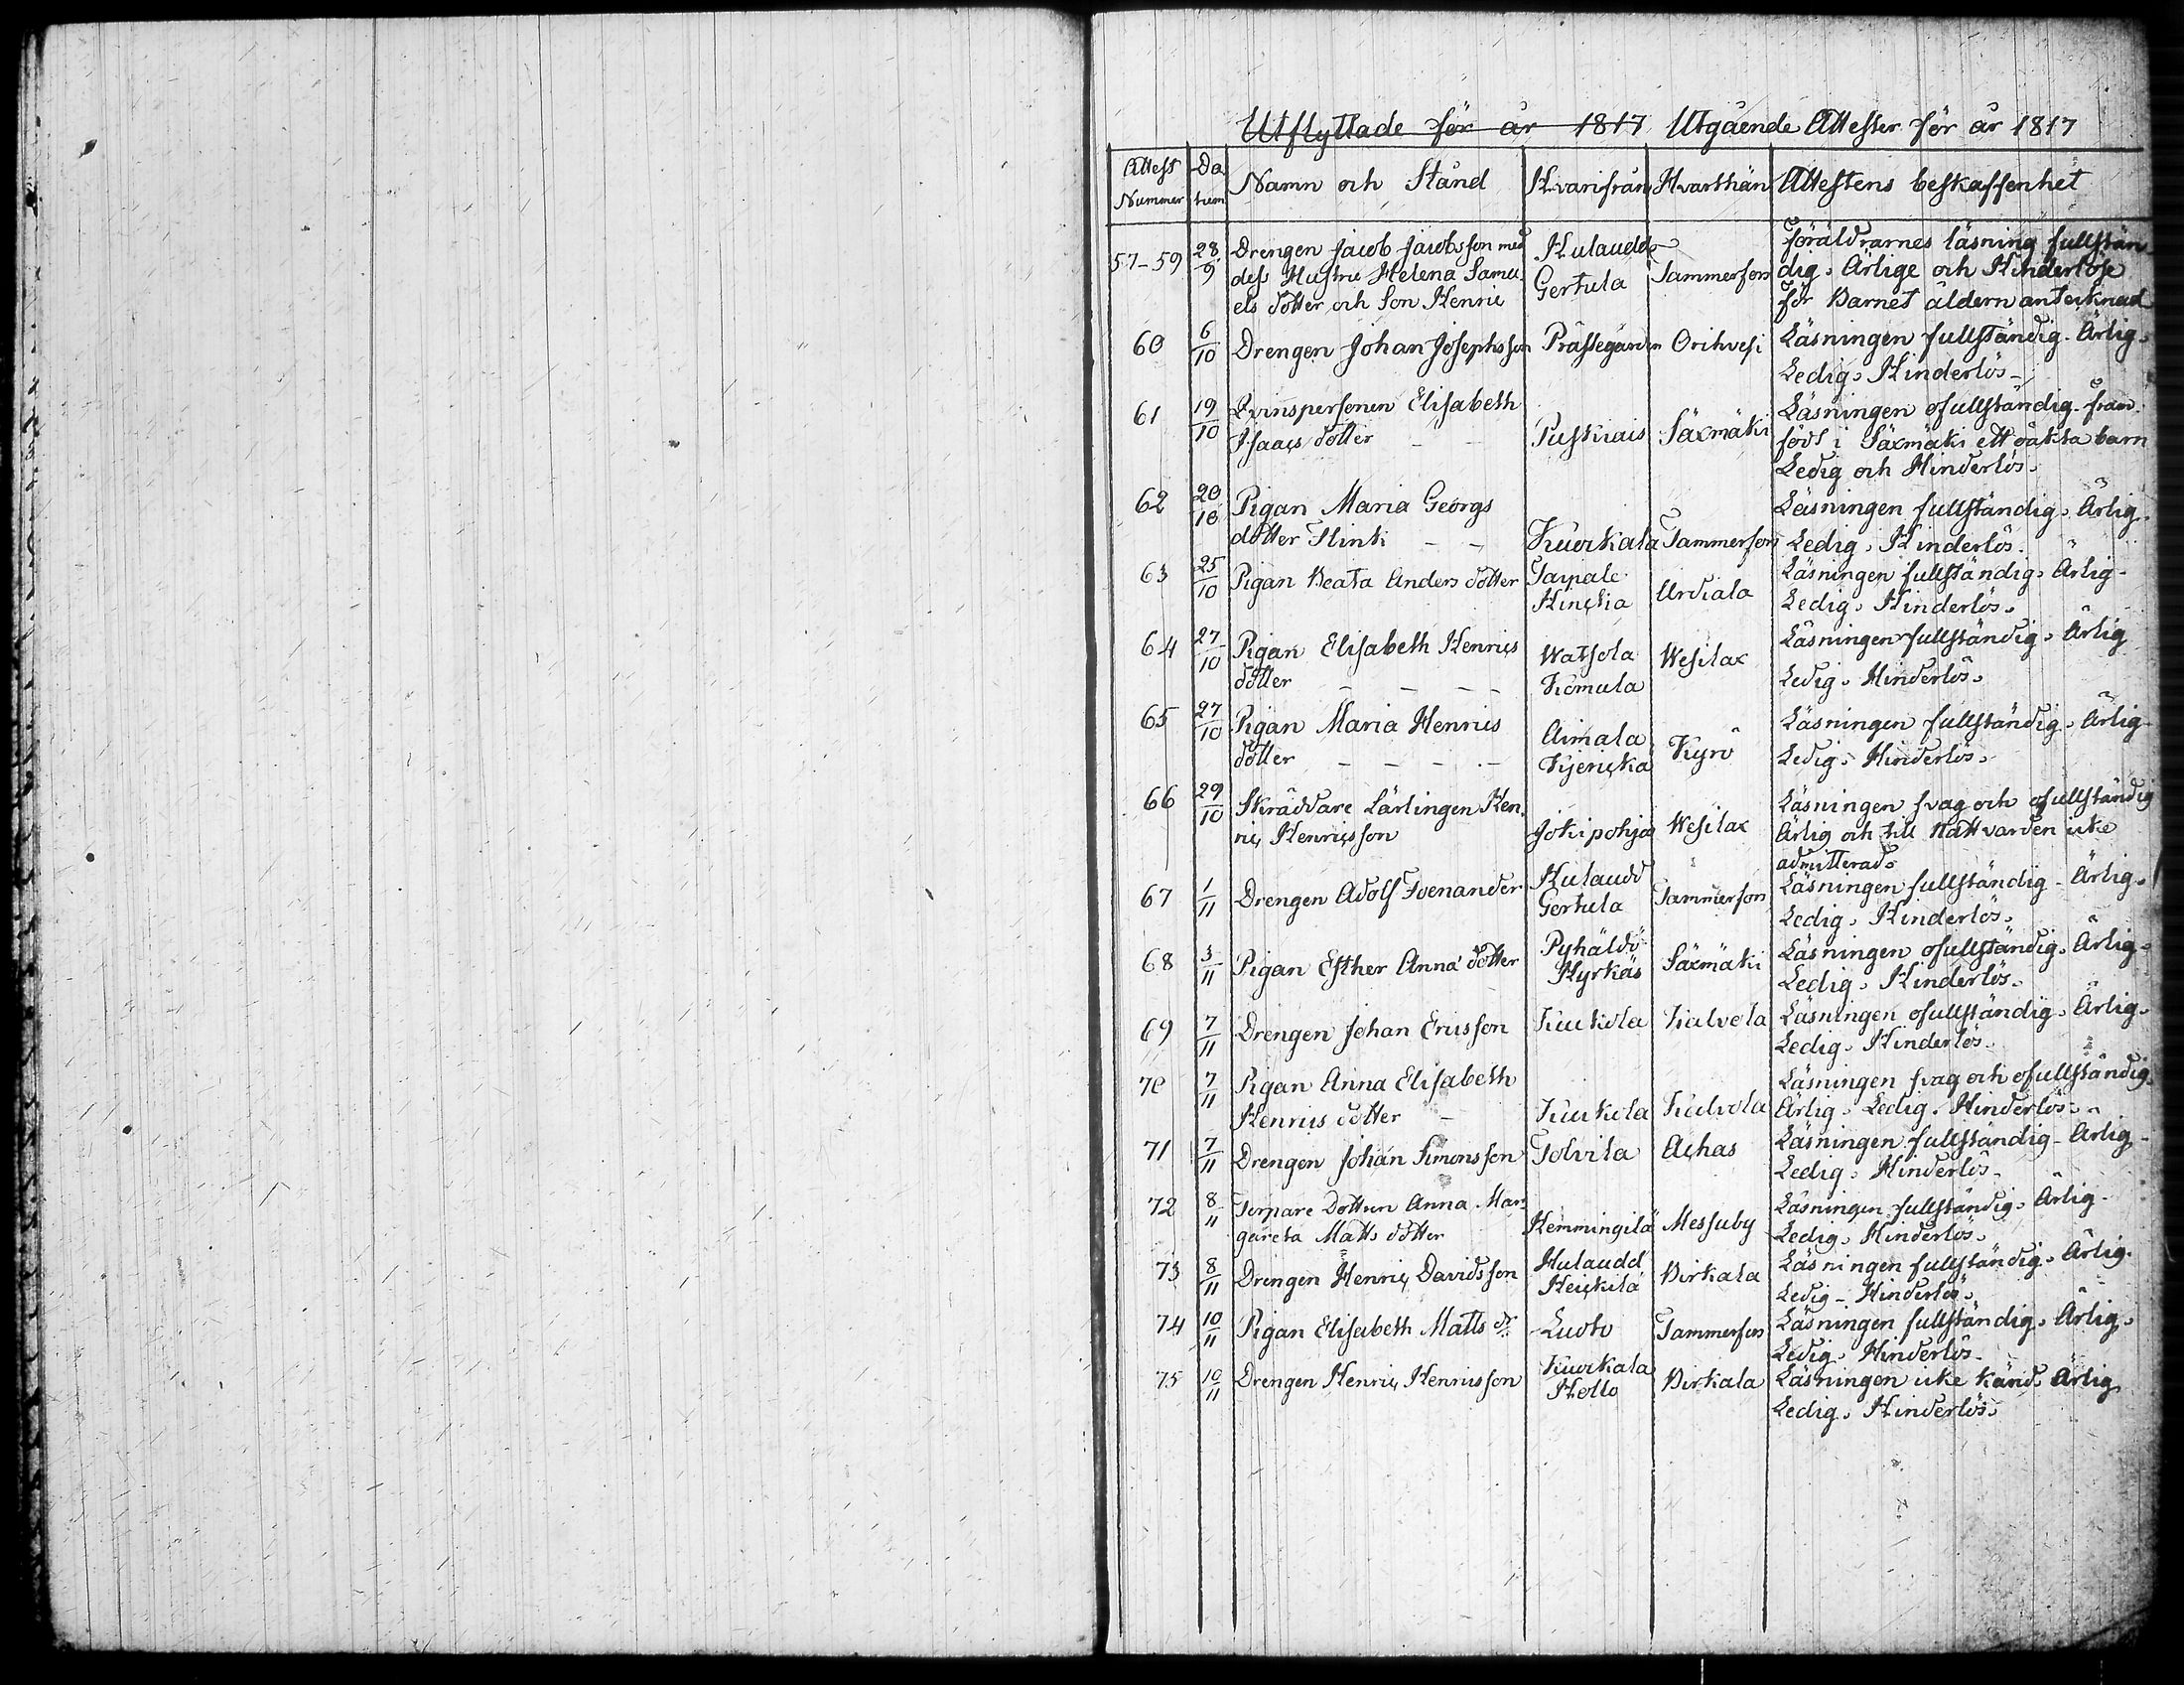 Utflyttade för år 1817 Utgående Attester för år 1817
Attest Nummer Datum Namn och Stånd Hvarifrån Hvarthän Attestens beskaffenhet
57-59 28/9 Drengen Jacob Jacobsson med Hulaudd Föräldrarnes läsning fullstän
dess Hustru Helena Samu Gertula Tammerfors dig. Ärlige och Hinderlöse
els dotter och Son Henric för Barnet åldern antecknad
60 6/10 Drengen Johan Josephsson Prästegården Orihvesi Läsningen fullständig. Ärlig.
Ledig. Hinderlös.
61 19/10 Qvinspersonen Elisabeth Läsningen ofullständig. fram
Isaacs dotter Puskiais Säxmäki född i Säxmäki ett oäkta barn
Ledig och Hinderlös.
62 20/10 Pigan Maria Georgs Läsningen fullständig. Ärlig.
dotter Flink Kuurkala Tammerfors Ledig. Hinderlös.
63 25/10 Pigan Beata Anders dotter Taipale Läsningen fullständig. Ärlig.
Urdiala Ledig. Hinderlös.
64 27/10 Pigan Elisabeth Henrics Watsola Wesilax Läsningen fullständig. Ärlig
dotter Komula Ledig. Hinderlös.
65 27/10 Pigan Maria Henrics Aimala Kyrö Läsningen fullständig. Ärlig.
dotter Ledig. Hinderlös.
66 29/10 Skräddare Lärlingen Hen Läsningen svag och ofullständig
ric Henricsson Jokipohja Wesilax Ärlig och till Nattvarden icke
admitterad.
67 1/11 Drengen Adolf Svenander Hulaudd Tammerfors Läsningen fullständig. Ärlig.
Gertula Ledig. Hinderlös.
68 3/11 Pigan Esther Anna dotter Pyhäldö Säxmäki Läsningen ofullständig. Ärlig.
Hyrkäs Ledig. Hinderlös.
69 7/11 Drengen Johan Ericsson Kuukola Kalvola Läsningen ofullständig. Ärlig.
Ledig. Hinderlös.
70 7/11 Pigan Anna Elisabeth Läsningen svag och ofullständig.
Henrics dotter Kuukola Kalvola Ärlig. Ledig. Hinderlös.
71 7/11 Drengen Johan Simonsson Tolvila Achas Läsningen fullständig. Ärlig.
Ledig. Hinderlös.
72 8/11 Torpare Dottren Anna Mar Läsningen fullständig. Ärlig.
gareta Matts dotter Hemmingilä Messuby Ledig. Hinderlös.
73 8/11 Drengen Henric Davidsson Hulaudd Birkala Läsningen fullständig. Ärlig.
Heickilä Ledig. Hinderlös.
74 10/11 Pigan Elisabeth Matts dr Luoto Tammerfors Läsningen fullständig. Ärlig.
Ledig. Hinderlös.
75 10/11 Drengen Henric Henricsson Kuurkala Birkala Läsningen icke känd. Ärlig
Hollo Ledig. Hinderlös.